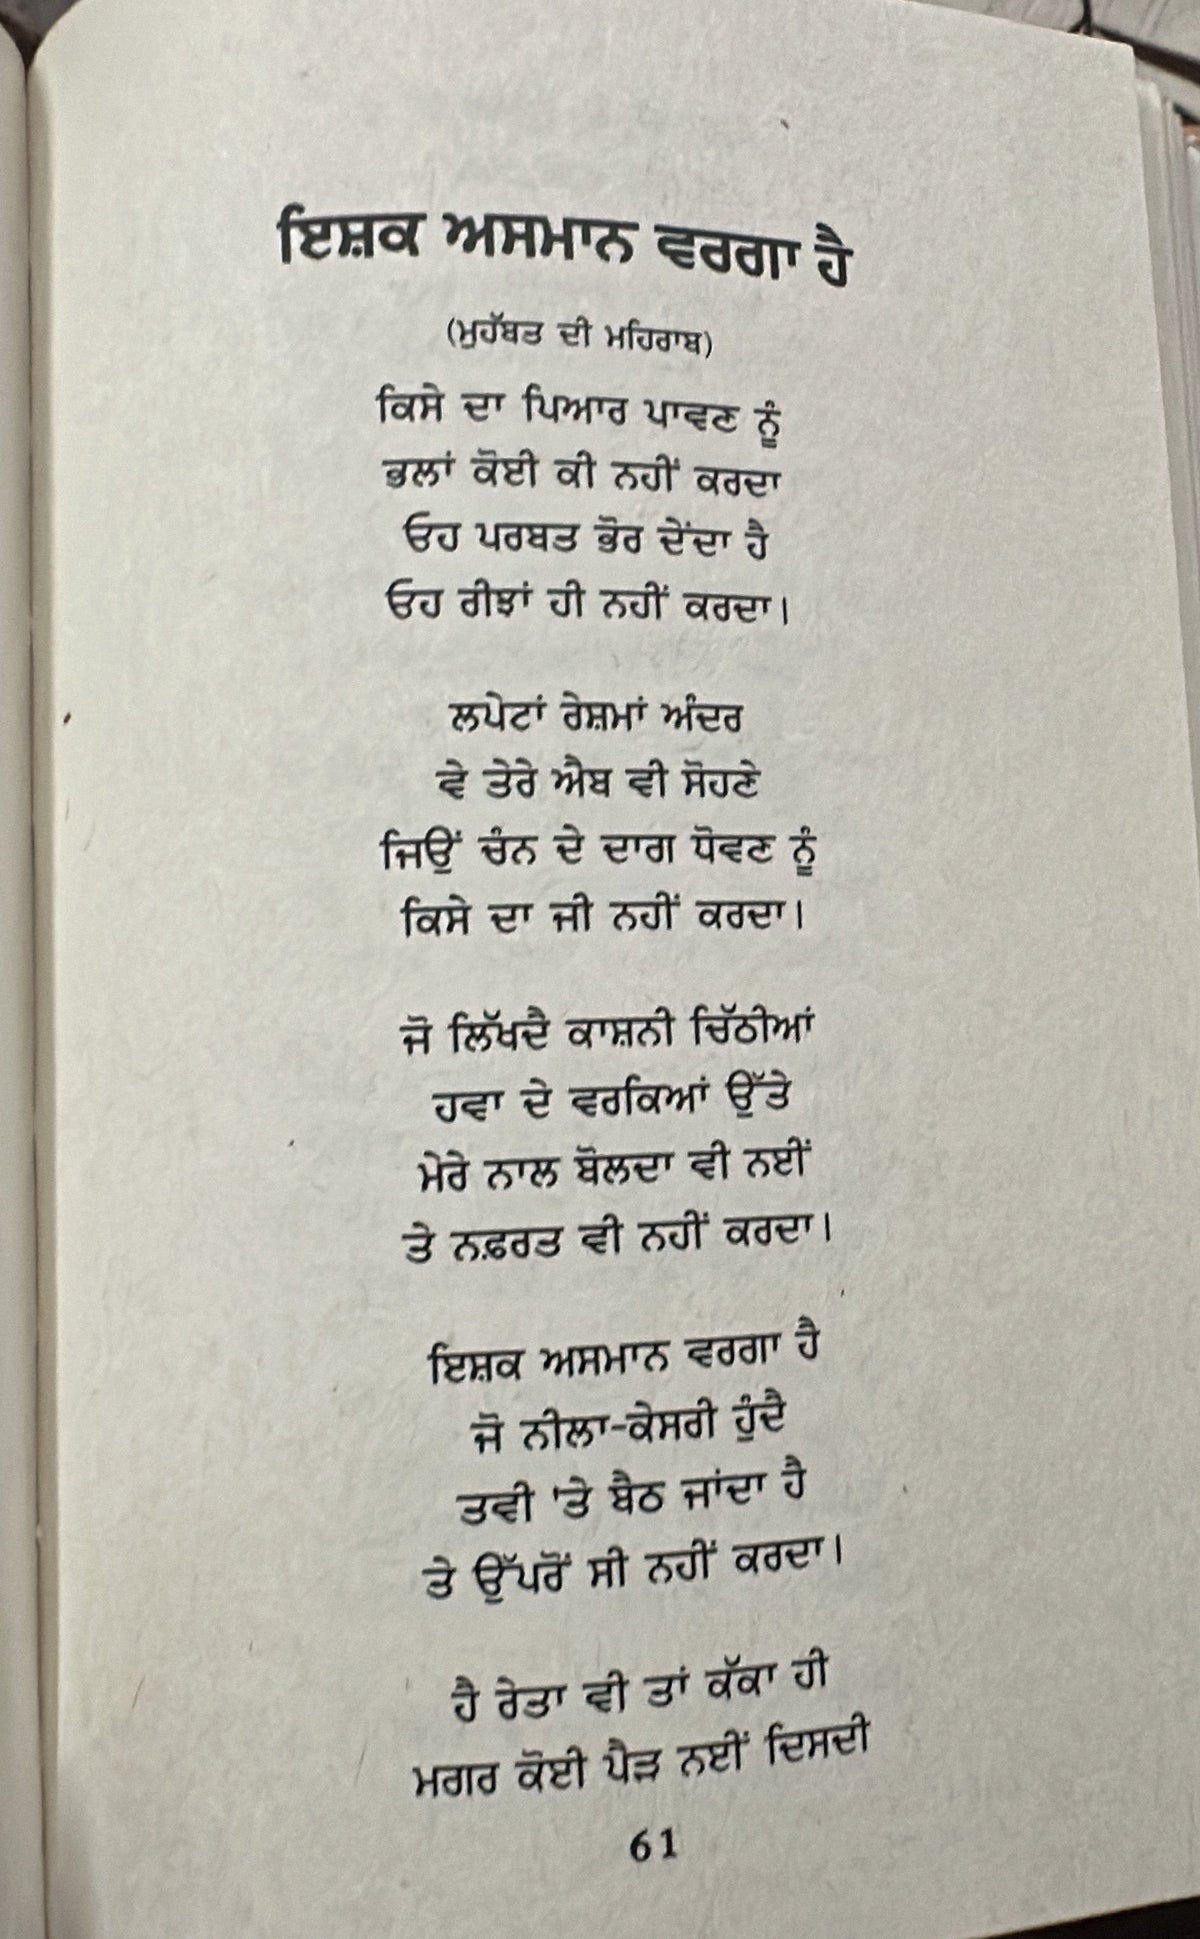 ਇਸ਼ਕ ਅਸਮਾਨ ਵਰਗਾ ਹੈ
(ਮੁਹੱਬਤ ਦੀ ਮਹਿਰਾਬ)
ਕਿਸੇ ਦਾ ਪਿਆਰ ਪਾਵਣ ਨੂੰ
ਭਲਾਂ ਕੋਈ ਕੀ ਨਹੀਂ ਕਰਦਾ
ਓਹ ਪਰਬਤ ਭੋਰ ਦੇਂਦਾ ਹੈ
ਓਹ ਰੀਝਾਂ ਹੀ ਨਹੀਂ ਕਰਦਾ।
ਲਪੇਟਾਂ ਰੇਸ਼ਮਾਂ ਅੰਦਰ
ਵੇ ਤੇਰੇ ਐਬ ਵੀ ਸੋਹਣੇ
ਜਿਉਂ ਚੰਨ ਦੇ ਦਾਗ ਧੋਵਣ ਨੂੰ
ਕਿਸੇ ਦਾ ਜੀ ਨਹੀਂ ਕਰਦਾ।
ਜੋ ਲਿੱਖਦੈ ਕਾਸ਼ਨੀ ਚਿੱਠੀਆਂ
ਹਵਾ ਦੇ ਵਰਕਿਆਂ ਉੱਤੇ
ਮੇਰੇ ਨਾਲ ਬੋਲਦਾ ਵੀ ਨਈਂ
ਤੇ ਨਫ਼ਰਤ ਵੀ ਨਹੀਂ ਕਰਦਾ।
ਇਸ਼ਕ ਅਸਮਾਨ ਵਰਗਾ ਹੈ
ਜੋ ਨੀਲਾ-ਕੇਸਰੀ ਹੁੰਦੈ
ਤਵੀ 'ਤੇ ਬੈਠ ਜਾਂਦਾ ਹੈ
ਤੇ ਉੱਪਰੋਂ ਸੀ ਨਹੀਂ ਕਰਦਾ।
ਹੈ ਰੇਤਾ ਵੀ ਤਾਂ ਕੱਕਾ ਹੀ
ਮਗਰ ਕੋਈ ਪੈੜ ਨਈਂ ਦਿਸਦੀ
61